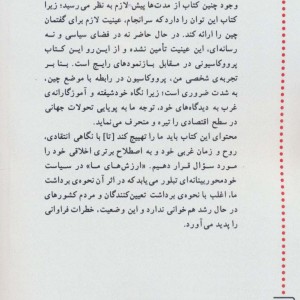 وجود چنین کتاب از مدت‌ها پیش، لازم به نظر می‌رسید؛ زیرا
کتاب این توان را دارد که سرانجام، عینیت لازم برای گفتمان
چین را ارائه کند. در حال حاضر نه در فضای سیاسی و نه
رسانه‌ای، این عینیت تأمین نشده و از این‌رو این کتاب
پرووکاسیونی در مقابل بازنمودهای رایج است. بنا بر
تجربه‌ی شخصی من، پرووکاسیون در رابطه با موضع چین،
به شدت ضروری است؛ زیرا نگاه خودشیفته و آموزگارانه‌ی
غرب به دیدگاه‌های خود، توجه ما به پویایی تحولات جهانی
در سطح اقتصادی را تیره و منحرف می‌نماید.
محتوای این کتاب باید ما را تهییج کند [تا] با نگاهی انتقادی،
روح و زمان غربی خود و به اصطلاح برتری اخلاقی خود را
مورد سؤال قرار دهیم. «ارزش‌های ما» در سیاست
خودمحوربینانه‌ای تبلور می‌یابد که در اثر آن نحوه‌ی برداشت
ما، اغلب با نحوه‌ی برداشت تعیین‌کنندگان و مردم کشورهای
در حال رشد هم‌خوانی ندارد و این وضعیت، خطرات فراوانی
را پدید می‌آورد.